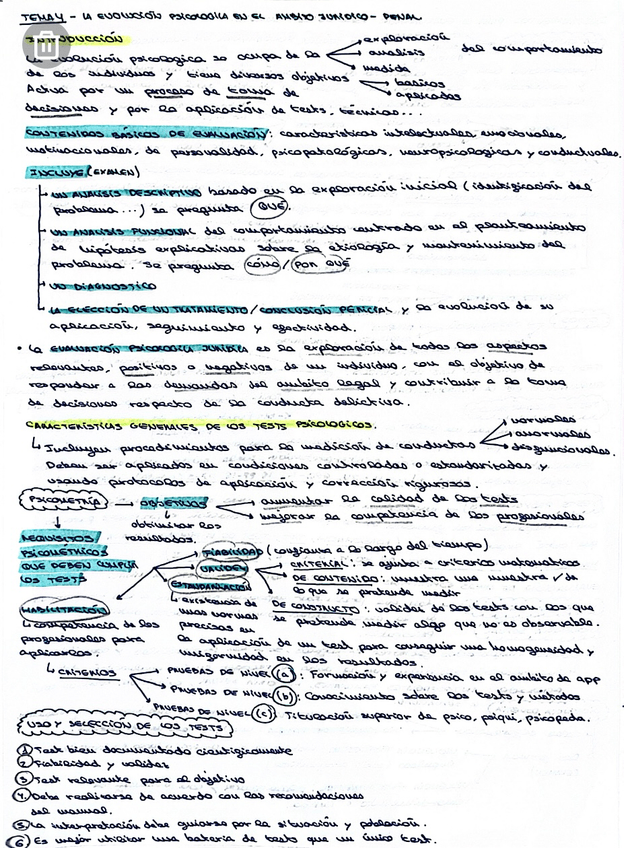 TEMA 4 - LA EVOLUCIÓN PSICOLOGÍA EN EL AMBITO JURÍDICO - PENAL
INTRODUCCIÓN
La evolución psicologica se ocupa de la → exploración
→ analisis
→ medida
del comportamiento
de los individuos y tiene diversos objetivos → basicos
→ aplicados
Actua por un proceso de toma de
decisiones y por la aplicación de tests, técnicas...
CONTENIDOS BÁSICOS DE EVALUACIÓN: caracteristicas intelectuales, emocionales,
motivacionales, de personalidad, psicopatológicas, neuropsicologicas y conductuales.
INCLUYE (EXAMEN)
UN ANALISIS DESCRIPTIVO basado en la exploración inicial (identificación del
problema...) se pregunta QUÉ.
UN ANALISIS FUNCIONAL del comportamiento centrado en el planteamiento
de hipótesis explicativas sobre la etiología y mantenimiento del
problema. Se pregunta cómo / POR QUÉ
UN DIAGNOSTICO
LA ELECCIÓN DE UN TRATAMIENTO / CONCLUSIÓN PERICIAL y la evolución de su
aplicación, seguimiento y efectividad.
• La EVALUACIÓN PSICOLOGÍA JURIDICA es la exploración de todos los aspectos
relevantes, positivos o negativos de un individuo, con el objetivo de
responder a las demandas del ambito legal y contribuir a la toma
de decisiones respecto de la conducta delictiva.
CARACTERÍSTICAS GENERALES DE LOS TESTS PSICOLOGICOS.
↳ Incluyen procedimientos para la medición de conductas → normales
→ anormales
→ disfuncionales.
Deben ser aplicados en condiciones controladas o estandarizadas y
usando protocolos de aplicación y corrección rigurosos.
PSICOMETRÍA → OBJETIVOS → aumentar la calidad de los tests
→ mejorar la competencia de los profesionales
optimizar los
resultados.
REQUISITOS
PSICOMÉTRICOS
QUE DEBEN CUMPLIR
LOS TESTS
FIABILIDAD (confianza a lo largo del tiempo)
VALIDEZ → CRITERIAL: se ajusta a criterios matematicos
DE CONTENIDO: muestra una muestra ✓ de
lo que se pretende medir
DE CONSTRUCTO: validez de los tests con los que
se pretende medir algo que no es observable.
ESTANDARIZACIÓN
↳ existencia de
unas normas
precisas en
la aplicación de un test para conseguir una homogeneidad y
uniformidad en los resultados.
HABILITACIÓN
↳ competencia de los
profesionales para
aplicarlos.
↳ CRITERIOS → PRUEBAS DE NIVEL (a): Formación y experiencia en el ambito de app
→ PRUEBAS DE NIVEL (b): Conocimiento sobre los tests y métodos
→ PRUEBAS DE NIVEL (c): Titulación superior de psico, psiqui, psicopeda.
USO Y SELECCIÓN DE LOS TESTS
1 Test bien documentado cientificamente
2 Fiabilidad y validez
3 Test relevante para el objetivo
4. Debe realizarse de acuerdo con las recomendaciones
del manual.
5 La interpretación debe guiarse por la situación y población.
6 Es mejor utilizar una bateria de tests que un único test.